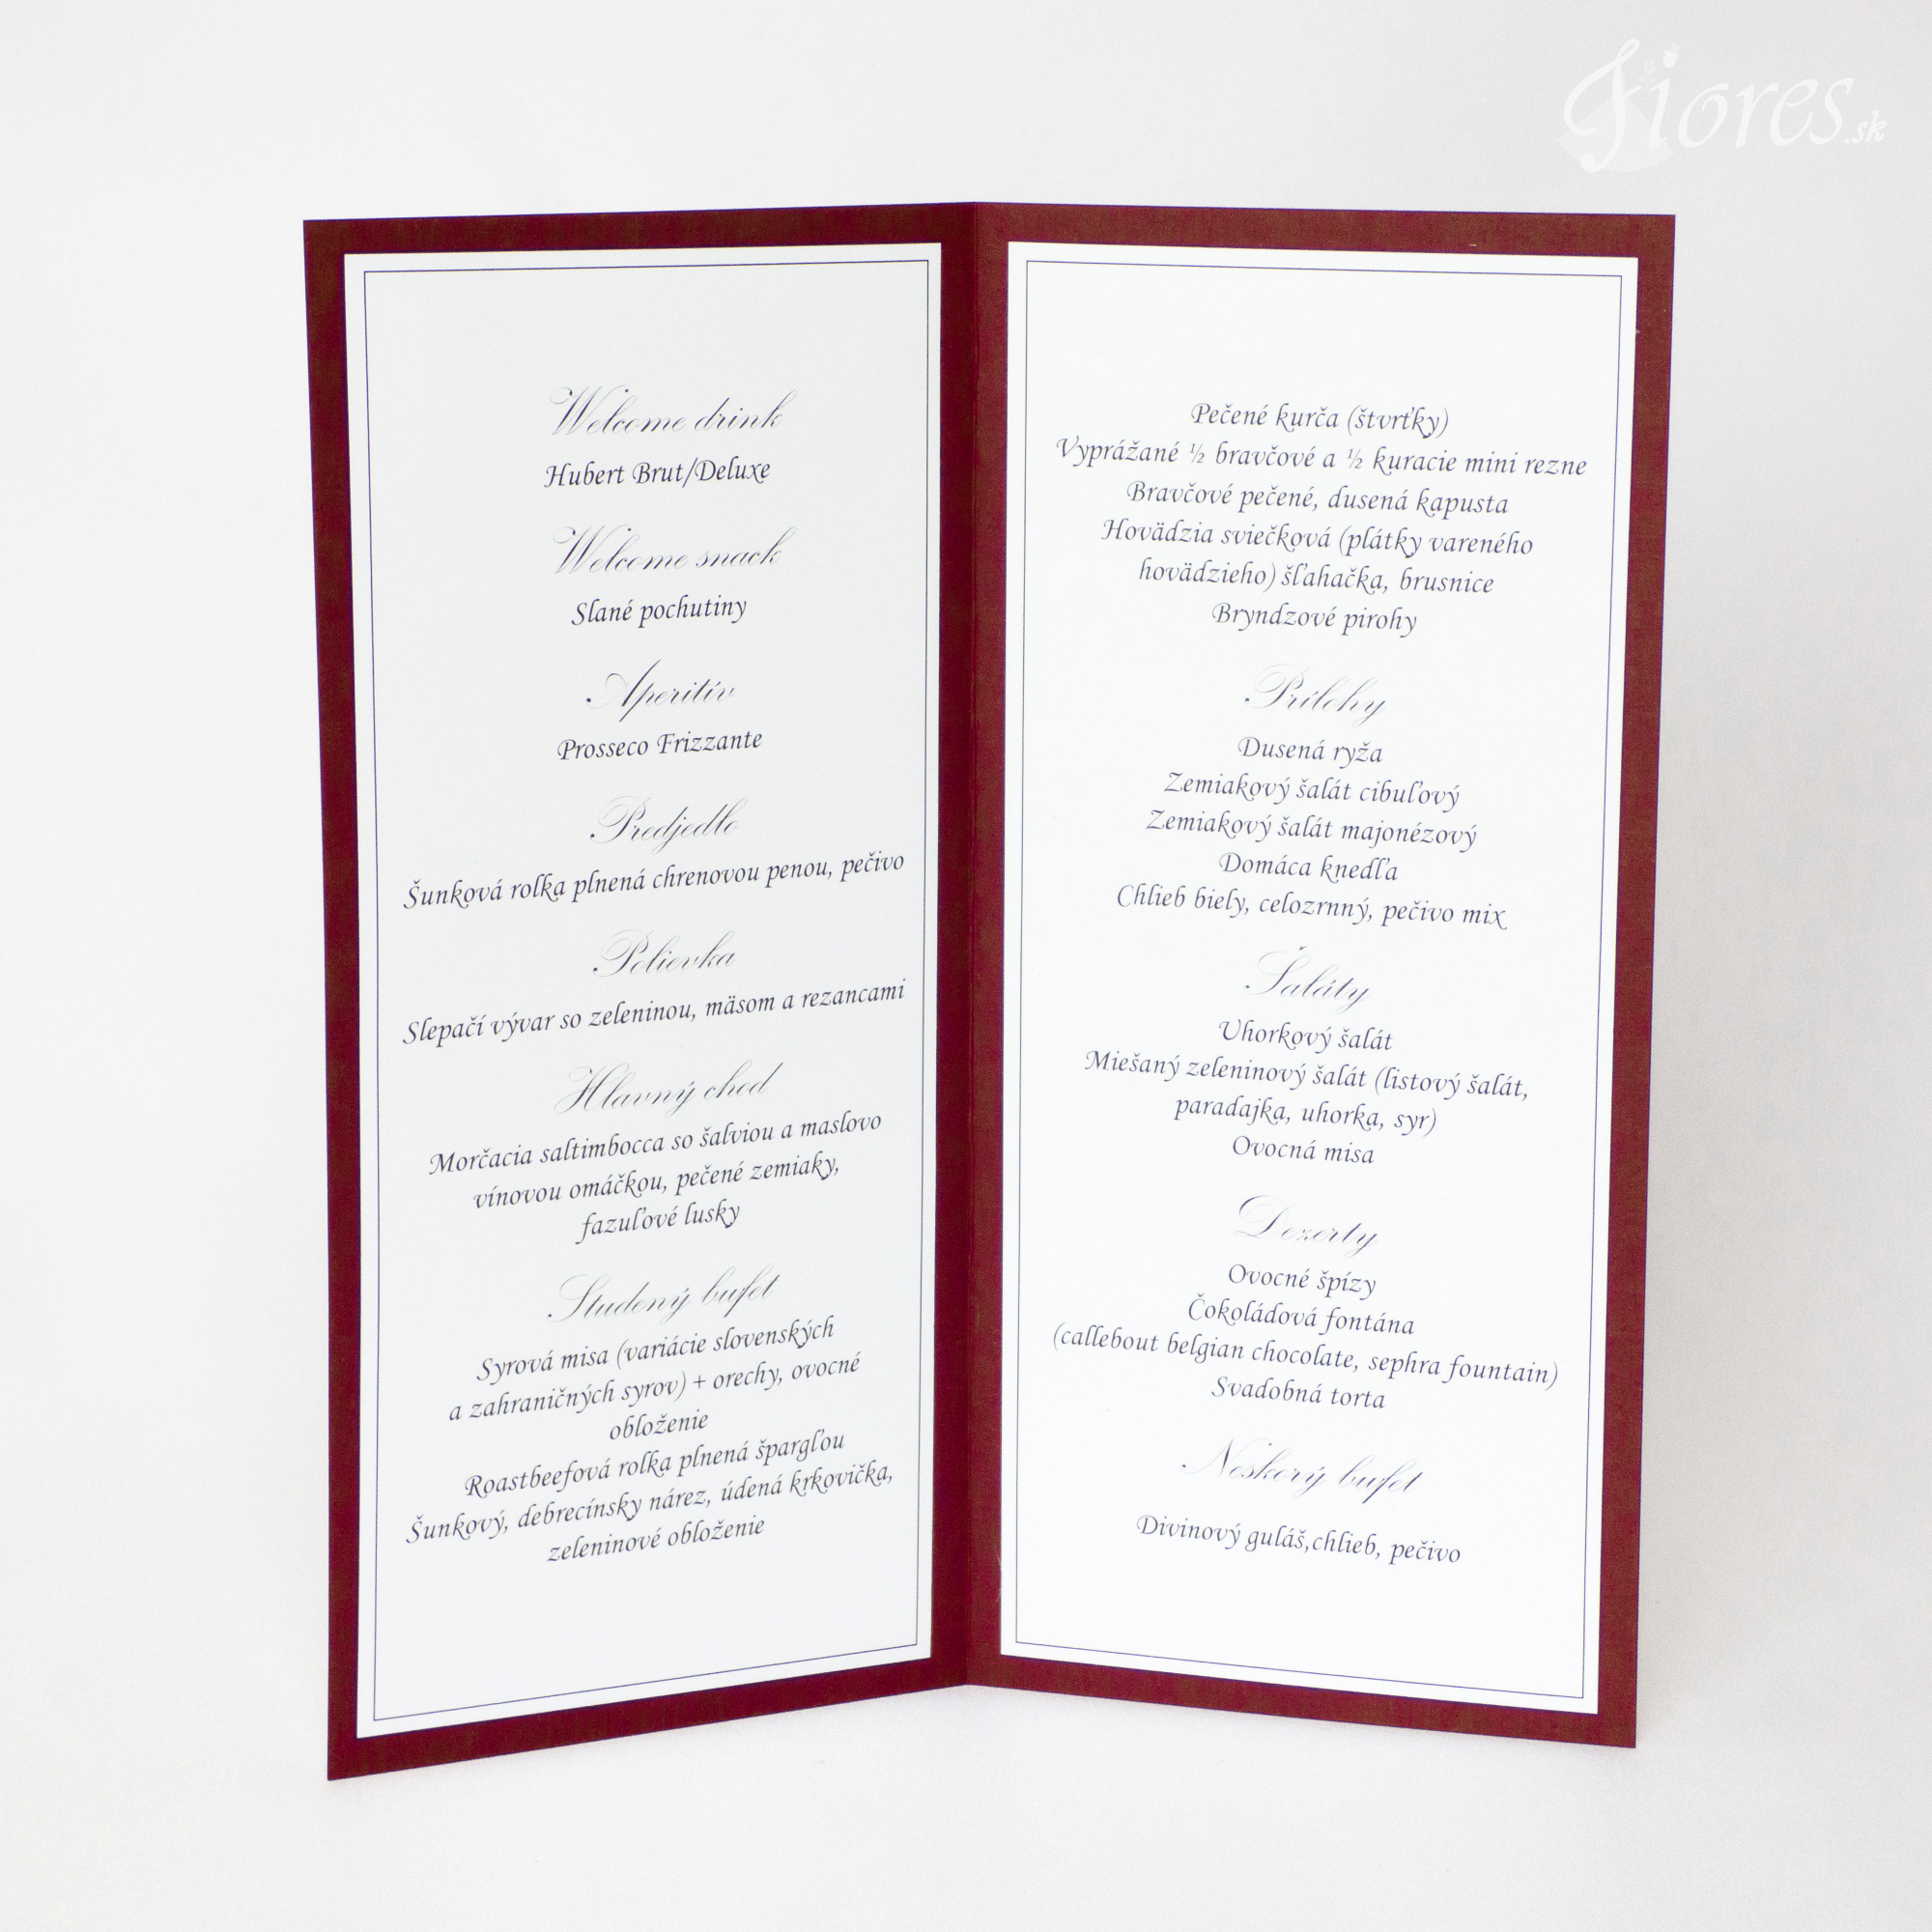 Fiores.sk
Welcome drink
Hubert Brut/Deluxe
Welcome snack
Slané pochutiny
Aperitív
Prosseco Frizzante
Predjedlo
Šunková rolka plnená chrenovou penou, pečivo
Polievka
Slepačí vývar so zeleninou, mäsom a rezancami
Hlavný chod
Morčacia saltimbocca so šalviou a maslovo
vínovou omáčkou, pečené zemiaky,
fazuľové lusky
Studený bufet
Syrová misa (variácie slovenských
a zahraničných syrov) + orechy, ovocné
obloženie
Roastbeefová rolka plnená špargľou
Šunkový, debrecínsky nárez, údená krkovička,
zeleninové obloženie
Pečené kurča (štvrťky)
Vyprážané ½ bravčové a ½ kuracie mini rezne
Bravčové pečené, dusená kapusta
Hovädzia sviečková (plátky vareného
hovädzieho) šľahačka, brusnice
Bryndzové pirohy
Prílohy
Dusená ryža
Zemiakový šalát cibuľový
Zemiakový šalát majonézový
Domáca knedľa
Chlieb biely, celozrnný, pečivo mix
Šaláty
Uhorkový šalát
Miešaný zeleninový šalát (listový šalát,
paradajka, uhorka, syr)
Ovocná misa
Dezerty
Ovocné špízy
Čokoládová fontána
(callebout belgian chocolate, sephra fountain)
Svadobná torta
Neskorý bufet
Divinový guláš,chlieb, pečivo